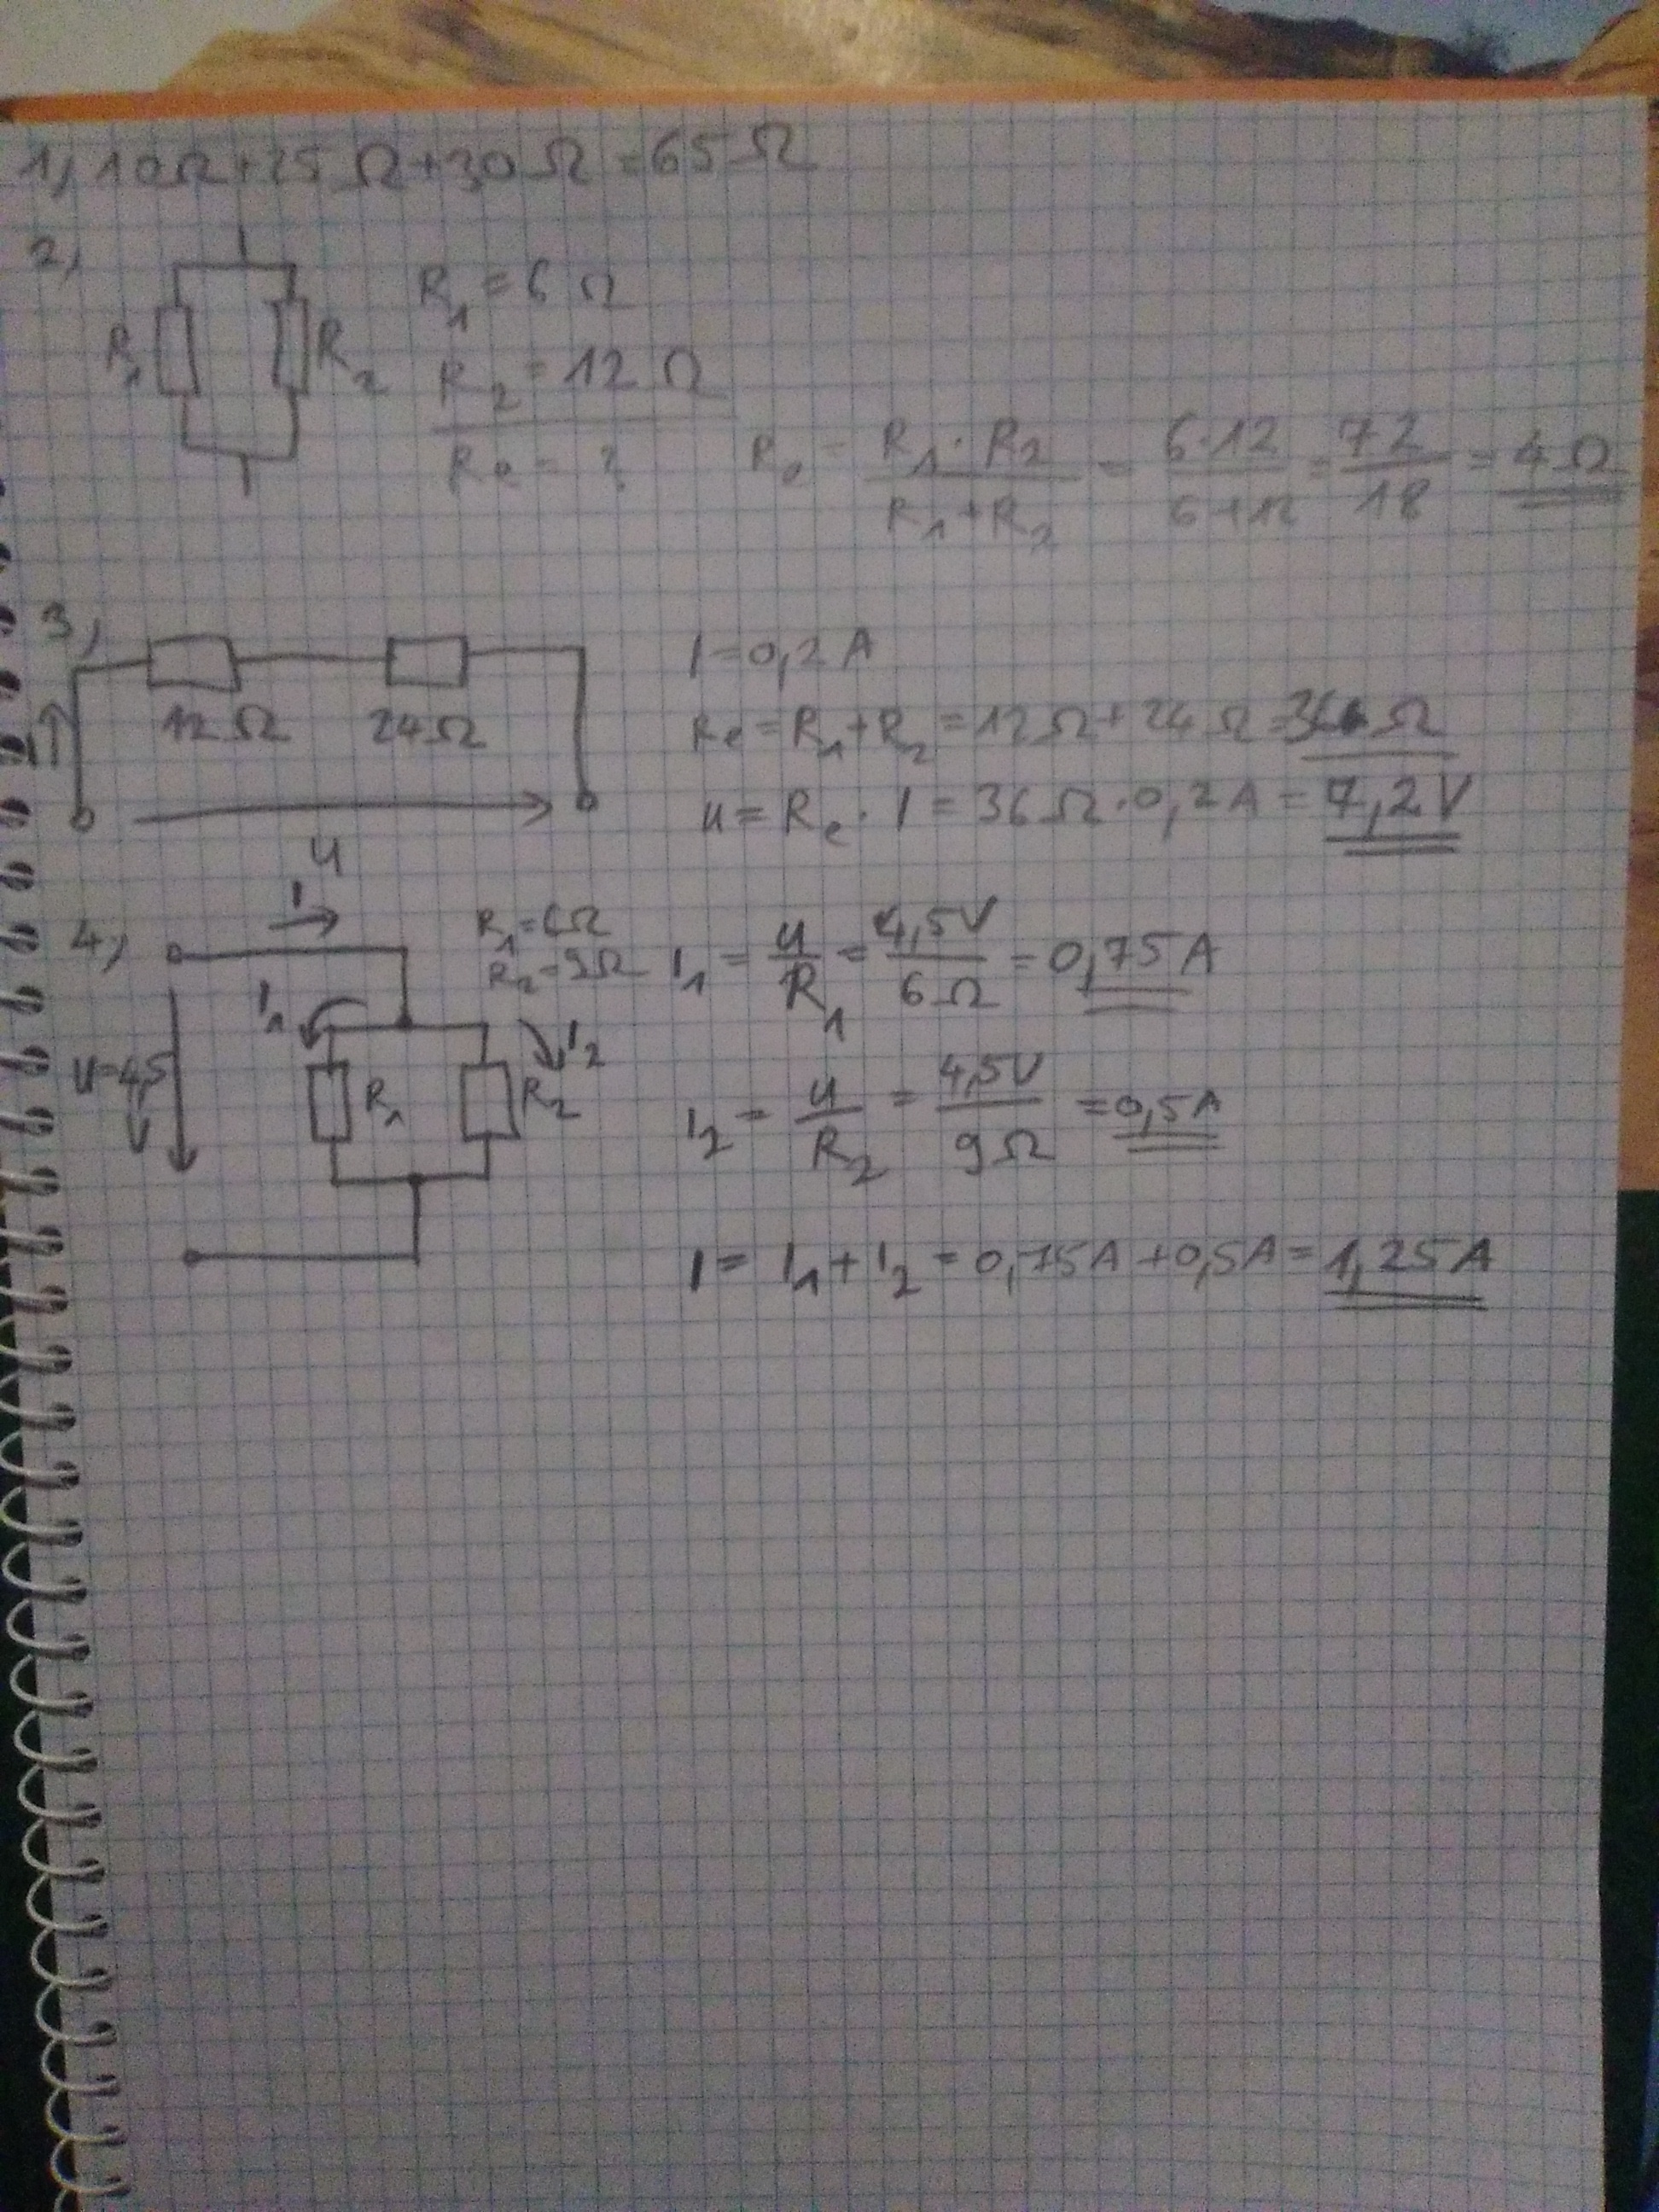 1) 10Ω+25Ω+30Ω=65Ω
2)
R₁ R₂
R₁=6Ω
R₂=12Ω
Re=?
Re=R₁·R₂/R₁+R₂=6·12/6+12=72/18=4Ω
3)
12Ω 24Ω
I
U
I=0,2A
Re=R₁+R₂=12Ω+24Ω=36Ω
U=Re·I=36Ω·0,2A=7,2V
4)
I
R₁=6Ω
R₂=9Ω
I₁ I₂
U=4,5V
R₁ R₂
I₁=U/R₁=4,5V/6Ω=0,75A
I₂=U/R₂=4,5V/9Ω=0,5A
I=I₁+I₂=0,75A+0,5A=1,25A